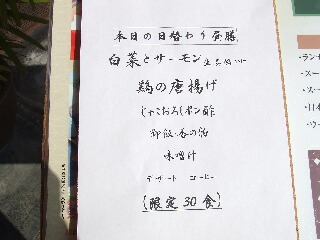 本日の日替わり御膳
白菜とサーモン
鶏の唐揚げ
じゃこおろしポン酢
御飯・香の物
味噌汁
デザート コーヒー
(限定30食)
・ラン
・スー
・スー